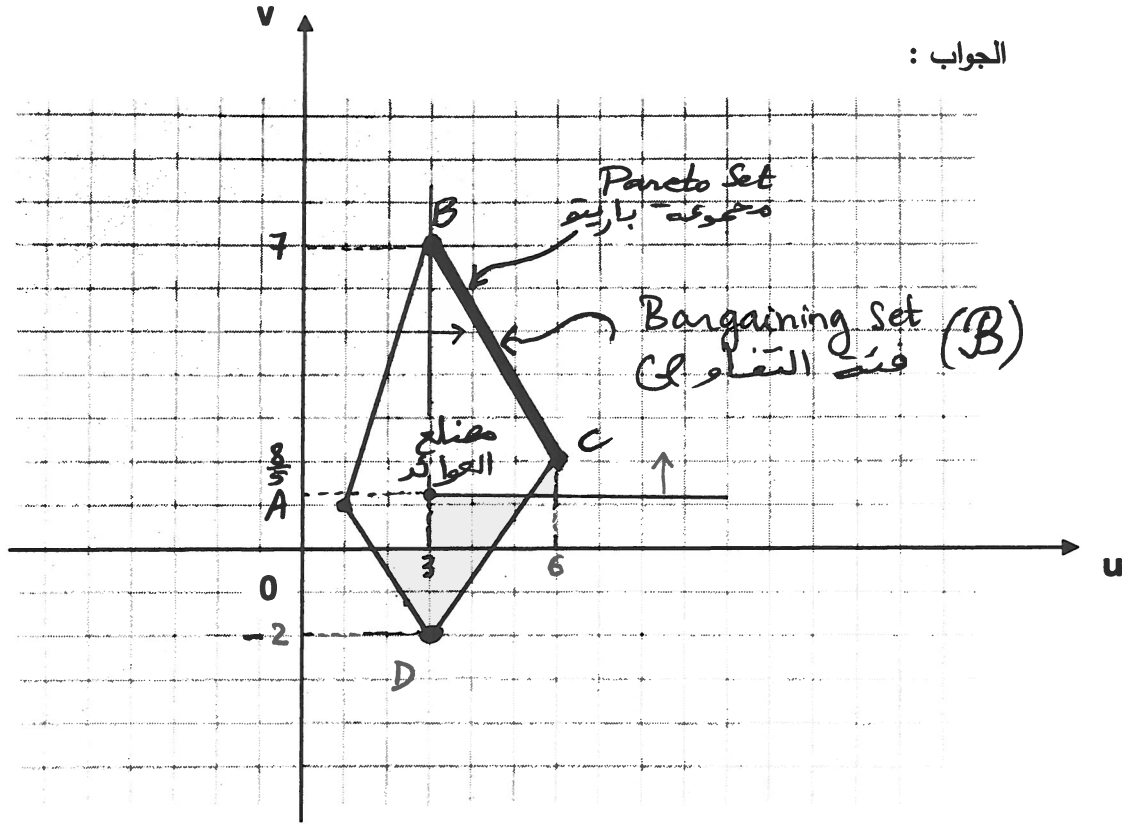 الجواب :
v
Pareto Set
مجموعة باريتو
B
7
Bargaining set (B)
فئة التفاوض
C
مضلع
العوائد
8/5
A
3
6
u
0
-2
D